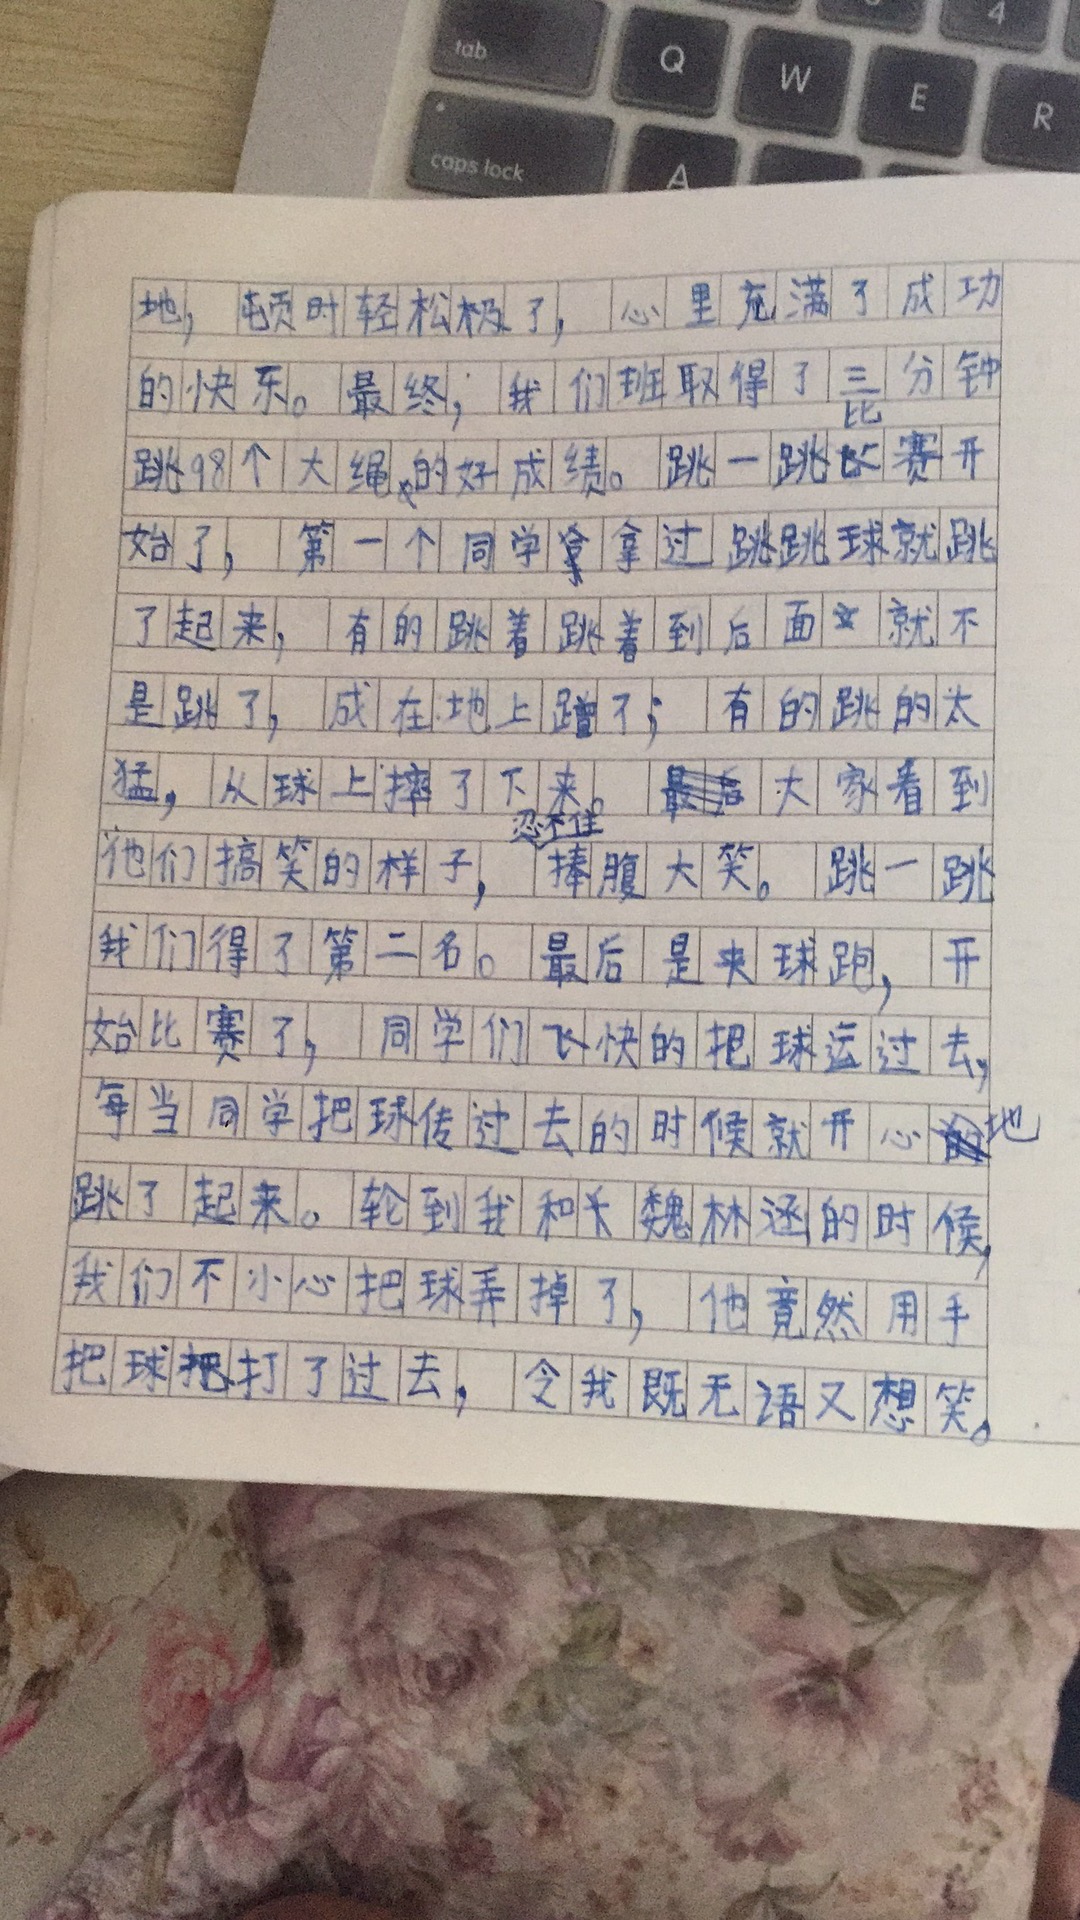 tab Q W E R
4
caps lock A
地，顿时轻松极了，心里充满了成功
的快乐。最终，我们班取得了三分钟
跳98个大绳的好成绩。跳一跳比赛开
始了，第一个同学拿过跳跳球就跳
了起来，有的跳着跳着到后面就不
是跳了，成在地上蹭了；有的跳的太
猛，从球上摔了下来。大家看到
他们搞笑的样子，忍不住捧腹大笑。跳一跳
我们得了第二名。最后是夹球跑，开
始比赛了，同学们飞快的把球运过去，
每当同学把球传过去的时候就开心地
跳了起来。轮到我和魏林涵的时候，
我们不小心把球弄掉了，他竟然用手
把球打了过去，令我既无语又想笑。